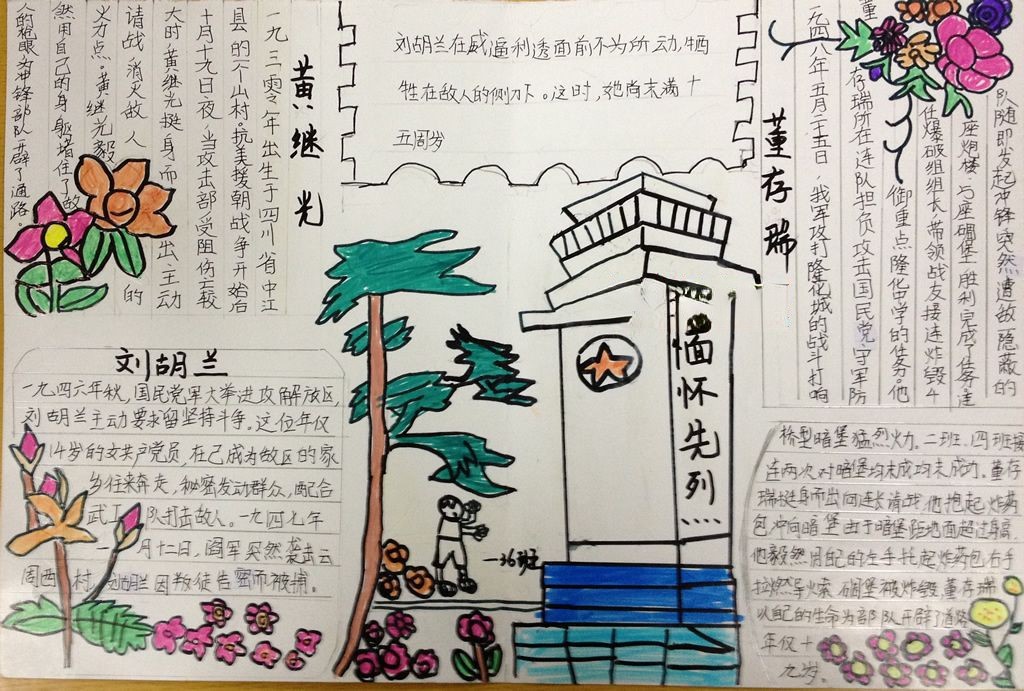 黄继光
一九三零年出生于四川省中江
县的一个山村。抗美援朝战争开始后
十月十九日夜,当攻击部受阻伤亡较
大时黄继光挺身而出主动
请战消灭敌人的
火力点。黄继光毅
然用自己的身躯堵住了敌
人的枪眼为冲锋部队辟了通路。
刘胡兰在威逼利透面前不为所动,牺
牲在敌人的侧刀下。这时,她尚未满十
五周岁
董存瑞
一九四八年五月二十五日,我军攻打隆化城的战斗打响
董存瑞所在连队担负攻击国民党守军防
御重点隆化中学的任务。他
任爆破组组长,带领战友接连炸毁4
座炮楼、5座碉堡,胜利完成了任务,连
队随即发起冲锋,突然遭敌隐蔽的
桥型暗堡猛烈火力。二班、四班接
连两次对暗堡均未成均未成功。董存
瑞挺身而出向连长请战,他抱起炸药
包冲向暗堡由于暗堡距地面超过身高,
他毅然用自己的左手托起炸药包右手
拉燃导火索,碉堡被炸毁,董存瑞
以自己的生命为部队开辟了道路
年仅十
九岁。
刘胡兰
一九四六年秋,国民党军大举进攻解放区,
刘胡兰主动要求留坚持斗争。这位年仅
14岁的女共产党员,在已成为敌区的家
乡往来奔走,秘密发动群众,配合
武工队打击敌人。一九四七年
一月十二日,阎军突然袭击云
周西村,刘胡兰因叛徒告密而被捕。
缅怀先列
一36班